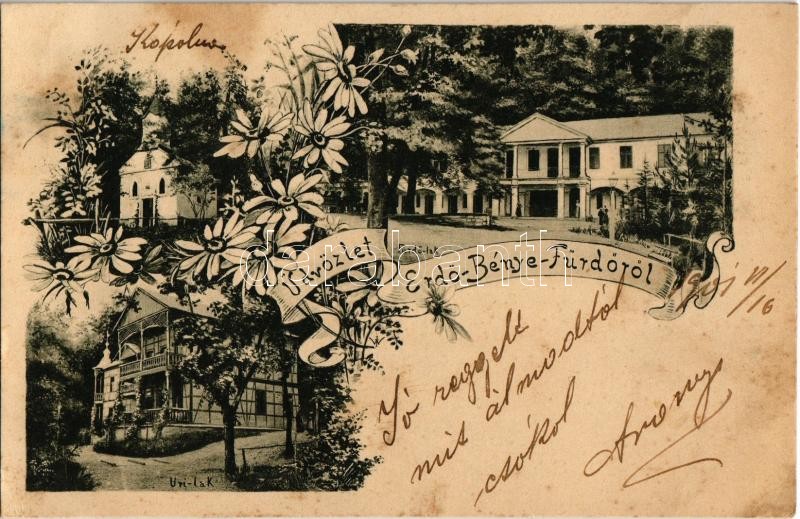 Kápolna
Üdvözlet
Erdő-Bénye-Fürdőről
Jó reggelt
mit álmodtál
csókol
Arany
Uri-lak
darabanth